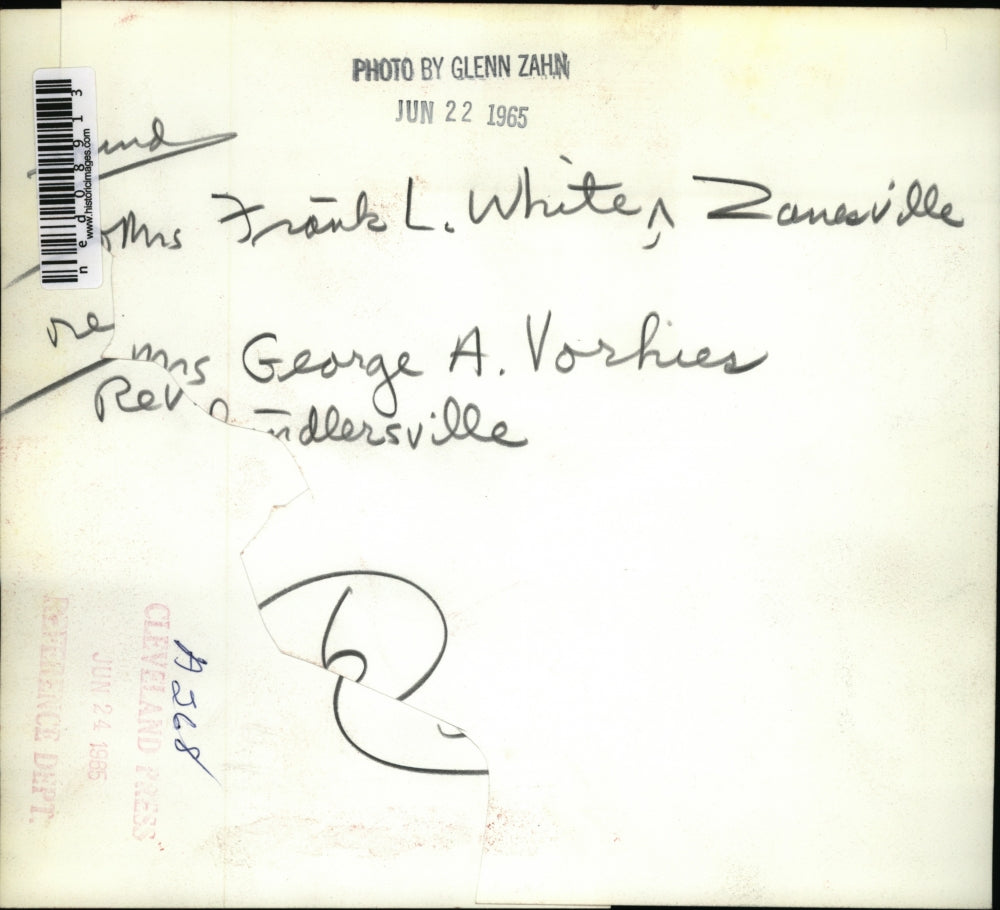 PHOTO BY GLENN ZAHN
JUN 22 1965
ned08913
www.historicimages.com
Mrs Frank L. White, Zanesville
re
Mrs George A. Vorhies
Rev
ndlersville
A268
CLEVELAND PRESS
JUN 24 1965
REFERENCE DEPT.